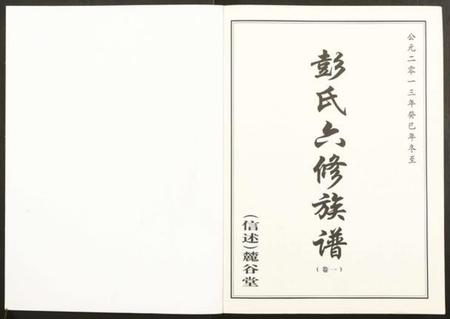 公元二零一三年癸巳年冬至
彭氏六修族谱
(卷一)
(信述)麓谷堂